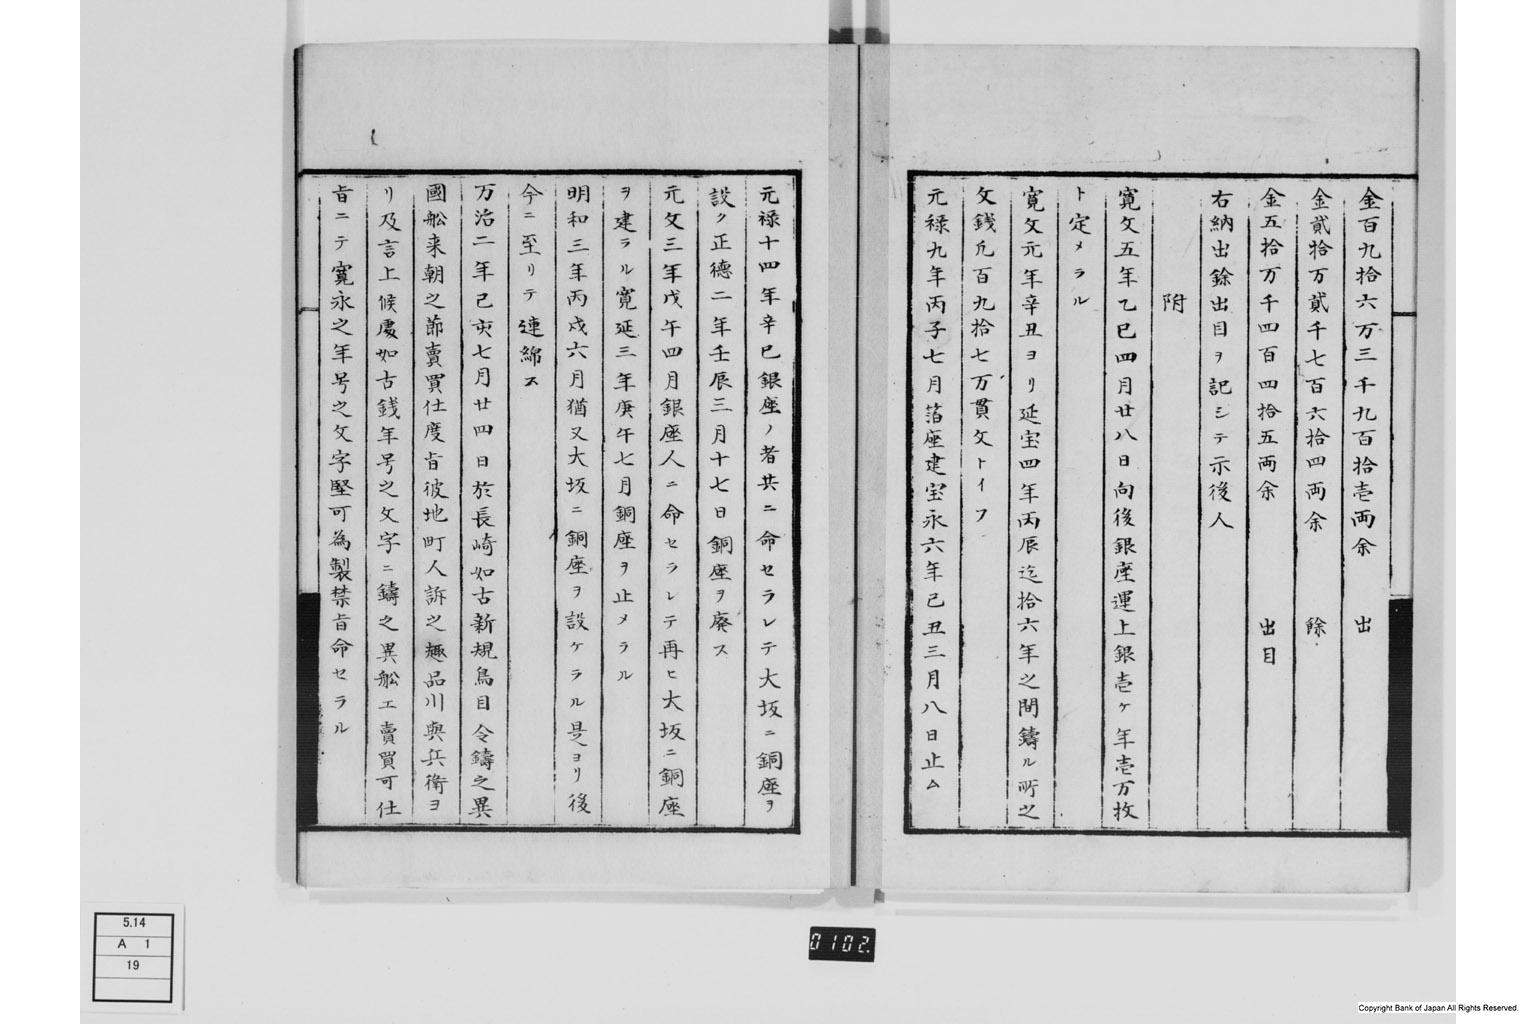 金百九拾六万三千九百拾壱両余　出
金貳拾万貳千七百六拾四両余　餘
金五拾万千四百四拾五両余　出目
右納出餘出目ヲ記シテ示後人
附
寛文五年乙巳四月廿八日向後銀座運上銀壱ヶ年壱万枚
ト定メラル
寛文元年辛丑ヨリ延宝四年丙辰迄拾六年之間鑄ル所之
文銭凡百九拾七万貫文トイフ
元禄九年丙子七月箔座建宝永六年己丑三月八日止ム
元禄十四年辛巳銀座ノ者共ニ命セラレテ大坂ニ銅座ヲ
設ク正德二年壬辰三月十七日銅座ヲ廢ス
元文三年戊午四月銀座人ニ命セラレテ再ヒ大坂ニ銅座
ヲ建ラル寛延三年庚午七月銅座ヲ止メラル
明和三年丙戌六月猶又大坂ニ銅座ヲ設ケラル是ヨリ後
今ニ至リテ連綿ス
万治二年己亥七月廿四日於長崎如古新規鳥目令鑄之異
國舩来朝之節賣買仕度旨彼地町人訴之趣品川與兵衛ヨ
リ及言上候處如古銭年号之文字ニ鑄之異舩エ賣買可仕
旨ニテ寛永之年号之文字堅可為製禁旨命セラル
5.14
A 1
19
0102.
Copyright Bank of Japan All Rights Reserved.